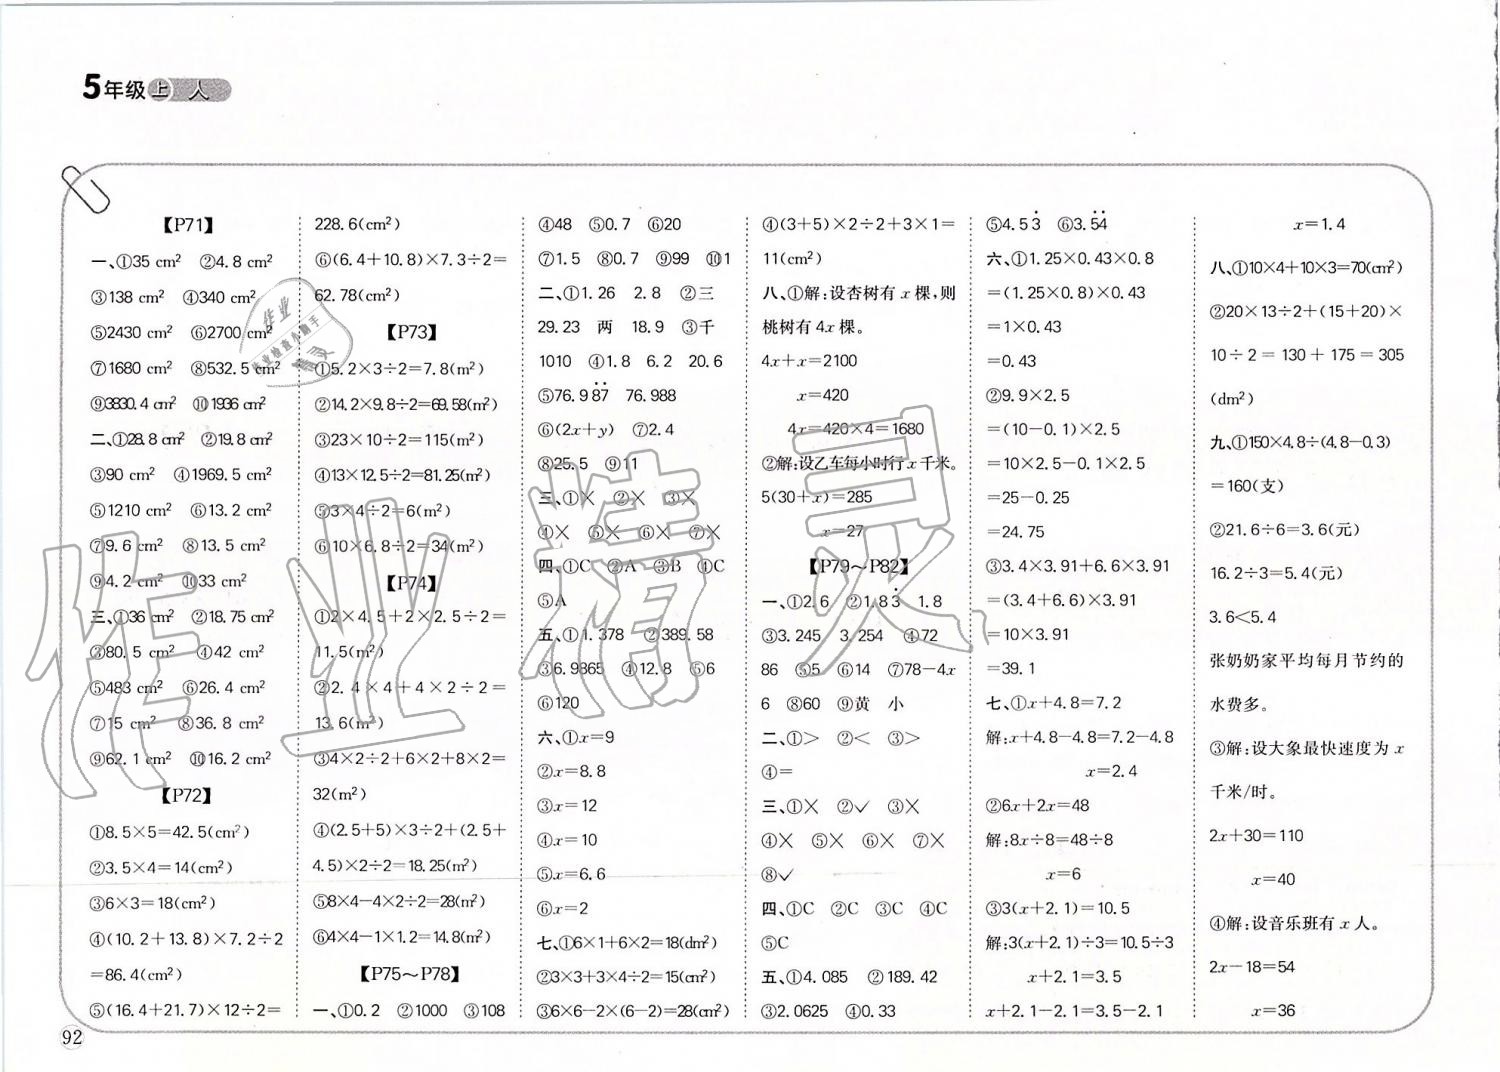 5年级上 人
【P71】
一、①35 cm² ②4.8 cm²
③138 cm² ④340 cm²
⑤2430 cm² ⑥2700 cm²
⑦1680 cm² ⑧532.5 cm²
⑨3830.4 cm² ⑩1936 cm²
二、①28.8 cm² ②19.8 cm²
③90 cm² ④1969.5 cm²
⑤1210 cm² ⑥13.2 cm²
⑦9.6 cm² ⑧13.5 cm²
⑨4.2 cm² ⑩33 cm²
三、①36 cm² ②18.75 cm²
③80.5 cm² ④42 cm²
⑤483 cm² ⑥26.4 cm²
⑦15 cm² ⑧36.8 cm²
⑨62.1 cm² ⑩16.2 cm²
【P72】
①8.5×5=42.5(cm²)
②3.5×4=14(cm²)
③6×3=18(cm²)
④(10.2+13.8)×7.2÷2
=86.4(cm²)
⑤(16.4+21.7)×12÷2=
228.6(cm²)
⑥(6.4+10.8)×7.3÷2=
62.78(cm²)
【P73】
①5.2×3÷2=7.8(m²)
②14.2×9.8÷2=69.58(m²)
③23×10÷2=115(m²)
④13×12.5÷2=81.25(m²)
⑤3×4÷2=6(m²)
⑥10×6.8÷2=34(m²)
【P74】
①2×4.5+2×2.5÷2=
11.5(m²)
②2.4×4+4×2÷2=
13.6(m²)
③4×2÷2+6×2+8×2=
32(m²)
④(2.5+5)×3÷2+(2.5+
4.5)×2÷2=18.25(m²)
⑤8×4-4×2÷2=28(m²)
⑥4×4-1×1.2=14.8(m²)
【P75～P78】
一、①0.2 ②1000 ③108
④48 ⑤0.7 ⑥20
⑦1.5 ⑧0.7 ⑨99 ⑩1
二、①1.26 2.8 ②三
29.23 两 18.9 ③千
1010 ④1.8 6.2 20.6
⑤76.98̇7̇ 76.988
⑥(2x+y) ⑦2.4
⑧25.5 ⑨11
三、①× ②× ③×
④× ⑤× ⑥× ⑦×
四、①C ②A ③B ④C
⑤A
五、①1.378 ②389.58
③6.9865 ④12.8 ⑤6
⑥120
六、①x=9
②x=8.8
③x=12
④x=10
⑤x=6.6
⑥x=2
七、①6×1+6×2=18(dm²)
②3×3+3×4÷2=15(cm²)
③6×6-2×(6-2)=28(cm²)
④(3+5)×2÷2+3×1=
11(cm²)
八、①解:设杏树有x棵,则
桃树有4x棵。
4x+x=2100
x=420
4x=420×4=1680
②解:设乙车每小时行x千米。
5(30+x)=285
x=27
【P79～P82】
一、①2.6 ②1.83̇ 1.8
③3.245 3.254 ④72
86 ⑤5 ⑥14 ⑦78-4x
6 ⑧60 ⑨黄 小
二、①> ②< ③>
④=
三、①× ②✓ ③×
④× ⑤× ⑥× ⑦×
⑧✓
四、①C ②C ③C ④C
⑤C
五、①4.085 ②189.42
③2.0625 ④0.33
⑤4.53̇ ⑥3.5̇4̇
六、①1.25×0.43×0.8
=(1.25×0.8)×0.43
=1×0.43
=0.43
②9.9×2.5
=(10-0.1)×2.5
=10×2.5-0.1×2.5
=25-0.25
=24.75
③3.4×3.91+6.6×3.91
=(3.4+6.6)×3.91
=10×3.91
=39.1
七、①x+4.8=7.2
解:x+4.8-4.8=7.2-4.8
x=2.4
②6x+2x=48
解:8x÷8=48÷8
x=6
③3(x+2.1)=10.5
解:3(x+2.1)÷3=10.5÷3
x+2.1=3.5
x+2.1-2.1=3.5-2.1
x=1.4
八、①10×4+10×3=70(cm²)
②20×13÷2+(15+20)×
10÷2=130+175=305
(dm²)
九、①150×4.8÷(4.8-0.3)
=160(支)
②21.6÷6=3.6(元)
16.2÷3=5.4(元)
3.6<5.4
张奶奶家平均每月节约的
水费多。
③解:设大象最快速度为x
千米/时。
2x+30=110
x=40
④解:设音乐班有x人。
2x-18=54
x=36
92
作业精灵